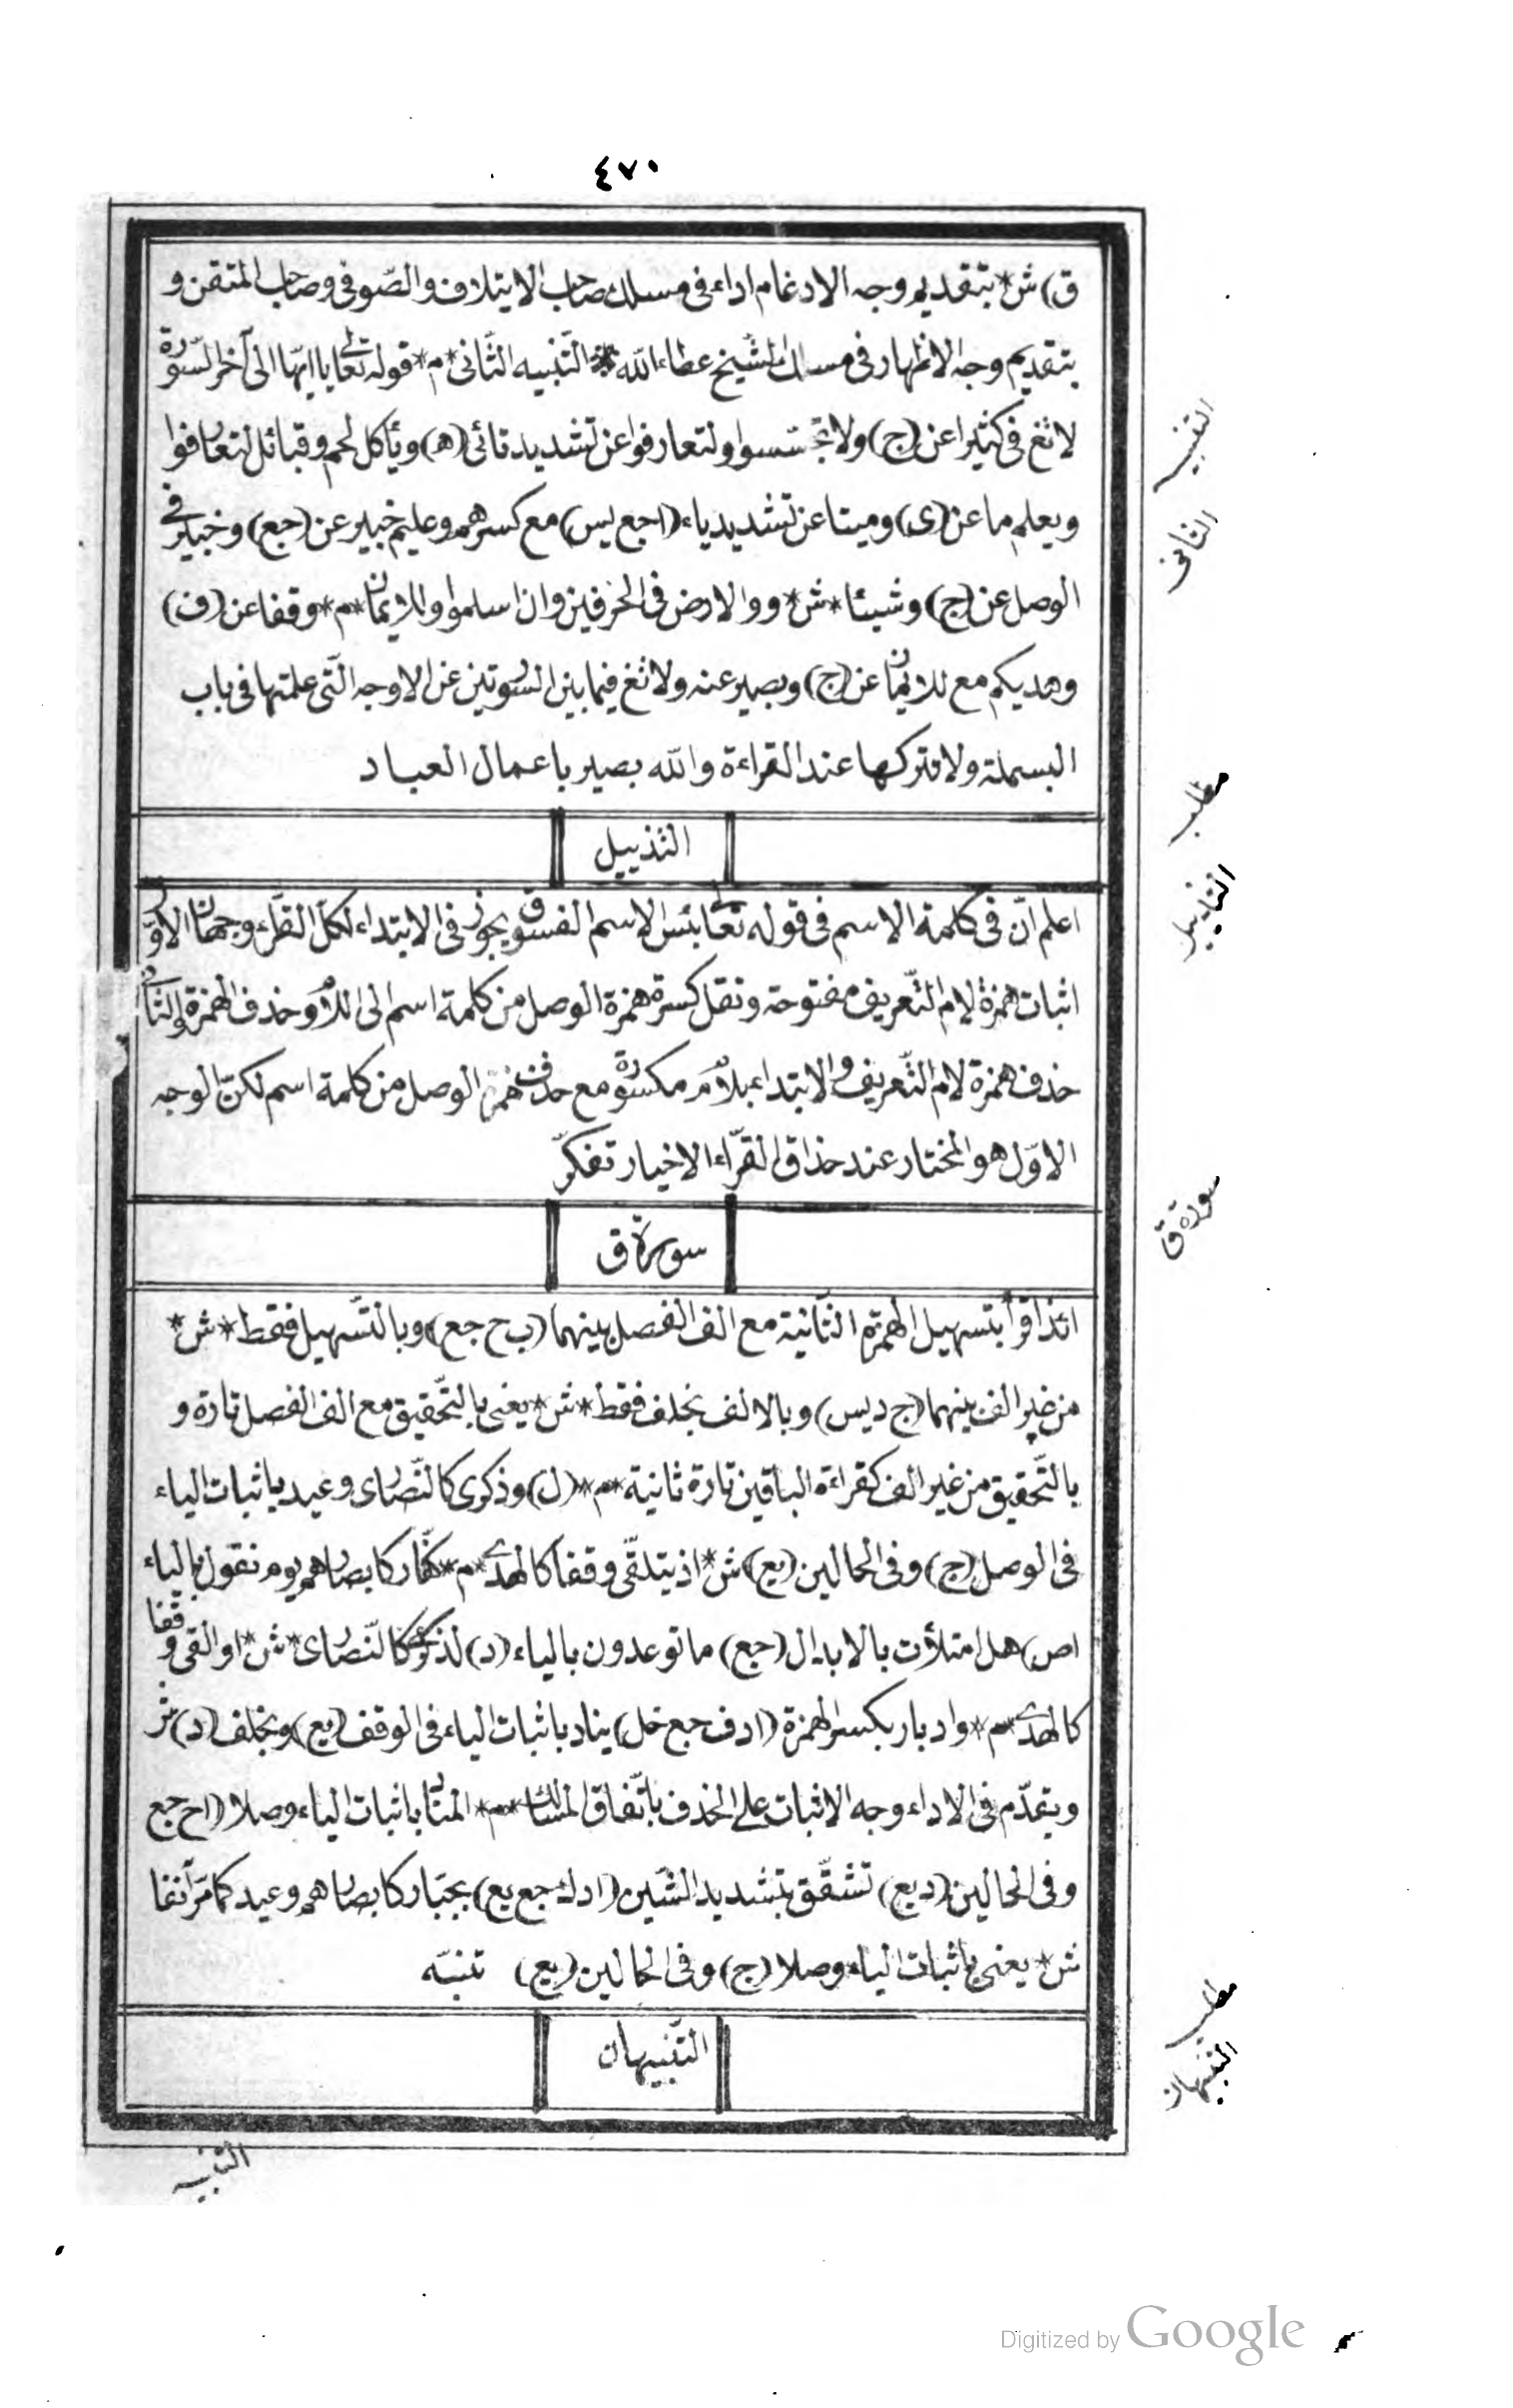 ٤٧٠
ق) ش* بتقديم وجه الادغام اداء فى مسلك صاحب الايتلاف والصّوفى وصاحب المتقن و
بتقديم وجه الاظهار فى مسلك الشيخ عطاء الله * التّنبيه الثّانى *م* قوله تعالى يا ايّها الى آخر السّورة
لا تغ فى كثيرا عن (ج) ولا تجسّسوا ولتعارفوا عن تشديد تائى (ه) ويأكل لحم وقبائل لتعارفوا
ويعلم ما عن (ى) وميتا عن تشديد ياء (اجع يس) مع كسرهم وعليم خبير عن (جع) وخبير فى
الوصل عن (ج) وشيئا *ش* و والارض فى الحرفين وان اسلموا وللايمان *م* وقفا عن (ف)
وهديكم مع للايمان عن (ج) وبصير عنه ولا تغ فيما بين السّورتين عن الاوجه الّتى علمتها فى باب
البسملة ولا تتركها عند القراءة والله بصير باعمال العباد
التّذييل
اعلم انّ فى كلمة الاسم فى قوله تعالى بئس الاسم الفسوق يجوز فى الابتداء لكلّ القرّاء وجهان الاوّل
اثبات همزة لام التّعريف مفتوحة ونقل كسرة همزة الوصل من كلمة اسم الى اللام وحذف الهمزة والثّانى
حذف همزة لام التّعريف والابتداء بلام مكسورة مع حذف همزة الوصل من كلمة اسم لكنّ الوجه
الاوّل هو المختار عند حذاق القرّاء الاخيار تفكّر
سورة ق
ائذا قرأ بتسهيل الهمزة الثّانية مع الف الفصل بينهما (ب ح جع) وبالتّسهيل فقط *ش*
من غير الف بينهما (ج د يس) وبالالف بخلف فقط *ش* يعنى بالتّحقيق مع الف الفصل تارة و
بالتّحقيق من غير الف كقراءة الباقين تارة ثانية *م* (ل) وذكرى كالنّصارى وعيد باثبات الياء
فى الوصل (ج) وفى الحالين (يع) ش* اذ يتلقّى وقفا كالهدى *م* كفّار كابصارهم يوم نقول بالياء
(اص) هل امتلأت بالابدال (جع) ما توعدون بالياء (د) لذكرى كالنّصارى *ش* او القى وقفا
كالهدى *م* وادبار بكسر الهمزة (ا د ف جع خل) يناد باثبات الياء فى الوقف (يع) وبخلف (د) ش*
ويقدّم فى الاداء وجه الاثبات على الحذف باتّفاق المسالك *م* المناد باثبات الياء وصلا (ا ح جع
وفى الحالين (د يع) تشقّق بتشديد الشّين (ا د ك جع يع) بجبّار كابصارهم وعيد كما مرّ آنفا
ش* يعنى باثبات الياء وصلا (ج) وفى الحالين (يع) تنبّه
التّنبيهان
التّنبيه
التنبيه
الثانى
مطلب
التذييل
سورة ق
مطلب
التنبيهان
Digitized by Google